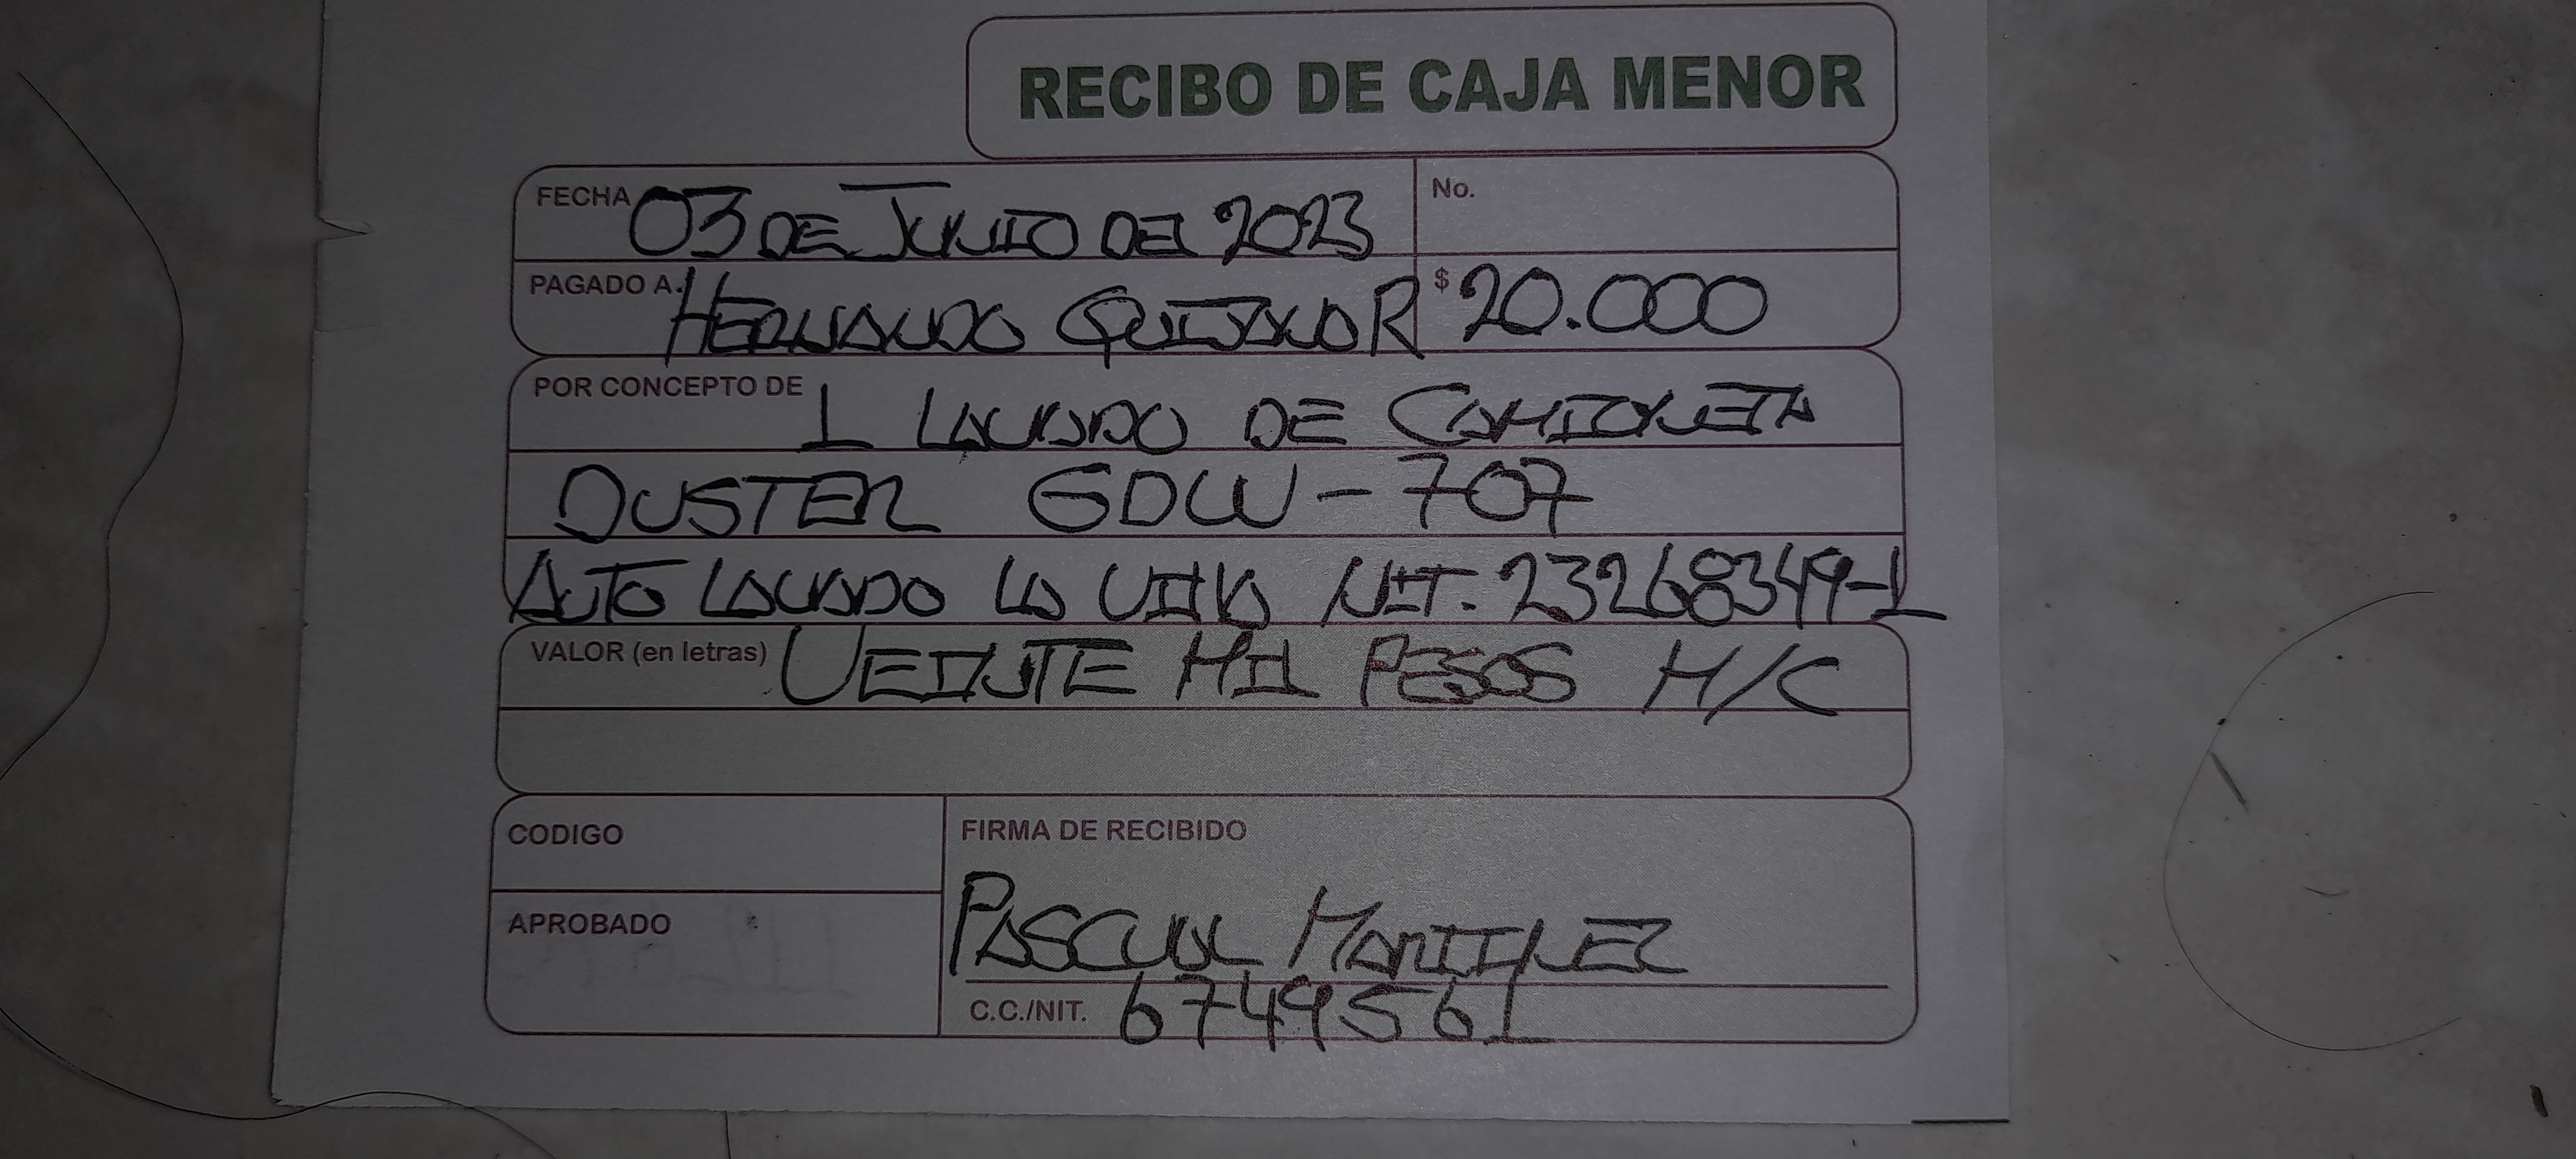 RECIBO DE CAJA MENOR
FECHA 03 DE JUNIO DEL 2023 No.
PAGADO A. HERNANDO QUIJANO R $ 20.000
POR CONCEPTO DE 1 LAVADO DE CAMIONETA
DUSTER GDW-707
AUTO LAVADO LA VILLA NIT. 23268349-1
VALOR (en letras) VEINTE MIL PESOS M/C
CODIGO
FIRMA DE RECIBIDO
APROBADO
PASCUAL MANRIQUEZ
C.C./NIT. 6749561